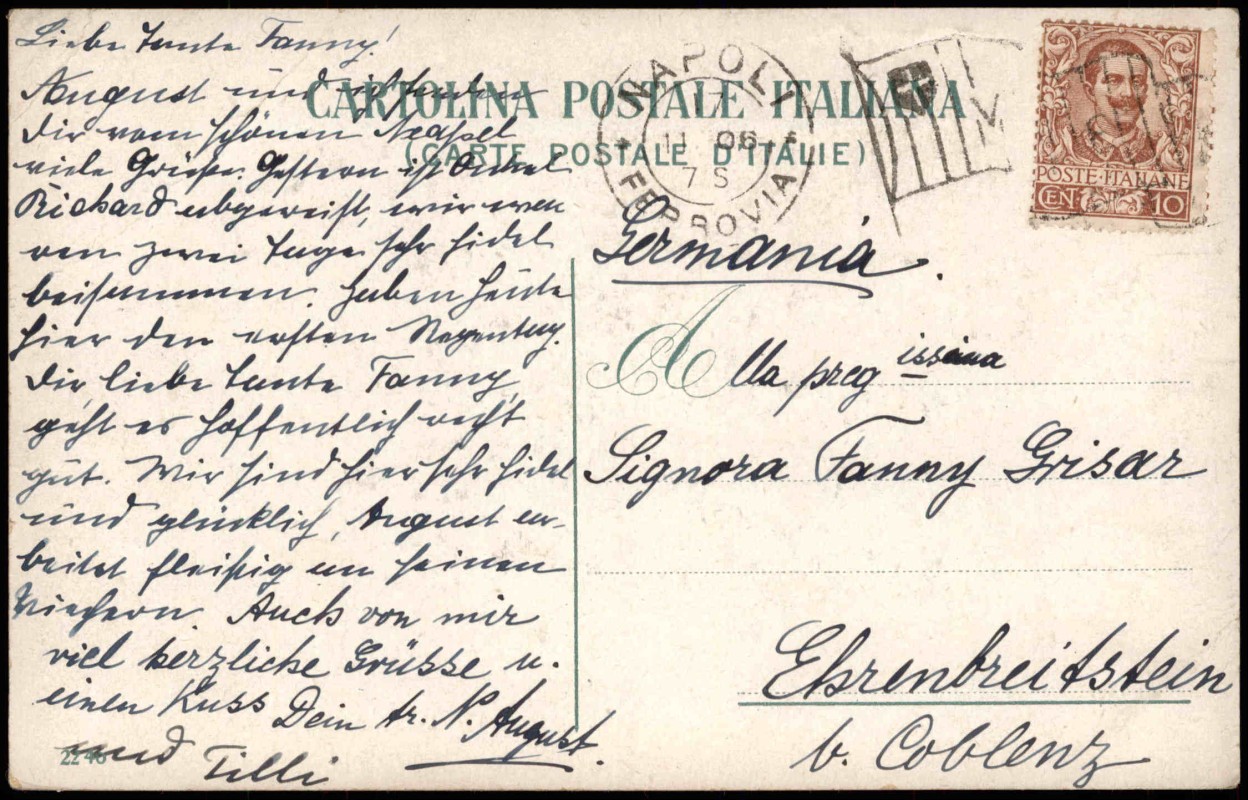 Liebe Tante Fanny!
August und ich senden
Dir vom schönen Neapel
viele Grüße. Gestern ist Onkel
Richard abgereist, wir wa-
ren zwei Tage sehr fidel
beisammen. Haben heute
hier den ersten Regentag.
Dir, liebe Tante Fanny,
geht es hoffentlich recht
gut. Wir sind hier sehr fidel
und glücklich, August ar-
beitet fleißig an seinen
Viechern. Auch von mir
viel herzliche Grüsse u.
einen Kuss Dein tr. N. August.
und Tilli
2246
CARTOLINA POSTALE ITALIANA
(CARTE POSTALE D'ITALIE)
NAPOLI
11 06
7 S
FERROVIA
POSTE·ITALIANE
CEN. 10
Germania.
Alla preg issima
Signora Fanny Grisar
Ehrenbreitstein
b. Coblenz